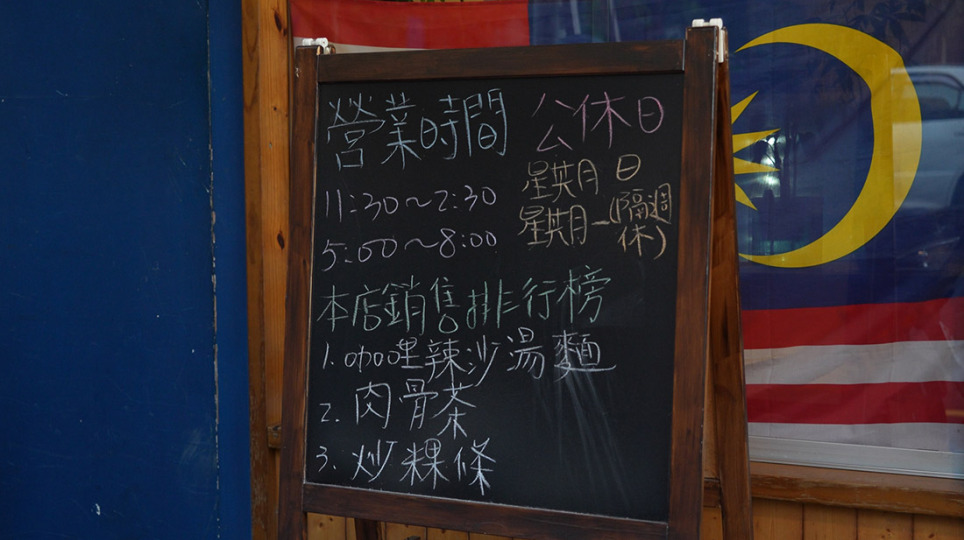 營業時間
11:30~2:30
5:00~8:00
公休日
星期日
星期一(隔週休)
本店銷售排行榜
1. 咖哩辣沙湯麵
2. 肉骨茶
3. 炒粿條